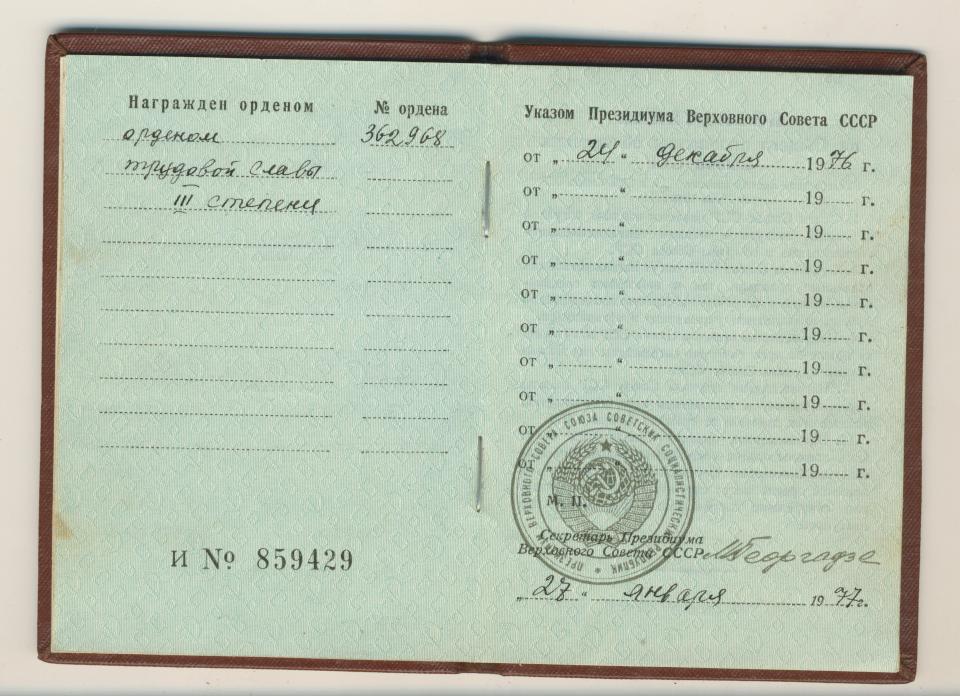 Награжден орденом
№ ордена
орденом
362968
трудовой славы
III степени
И № 859429
Указом Президиума Верховного Совета СССР
от „ 24 “ декабря 1976 г.
от „ “ 19 г.
от „ “ 19 г.
от „ “ 19 г.
от „ “ 19 г.
от „ “ 19 г.
от „ “ 19 г.
от „ “ 19 г.
от „ “ 19 г.
от „ “ 19 г.
ПРЕЗИДИУМ ВЕРХОВНОГО СОВЕТА СОЮЗА СОВЕТСКИХ СОЦИАЛИСТИЧЕСКИХ РЕСПУБЛИК
М. П.
Секретарь Президиума
Верховного Совета СССР МГеоргадзе
„ 27 “ января 1977г.